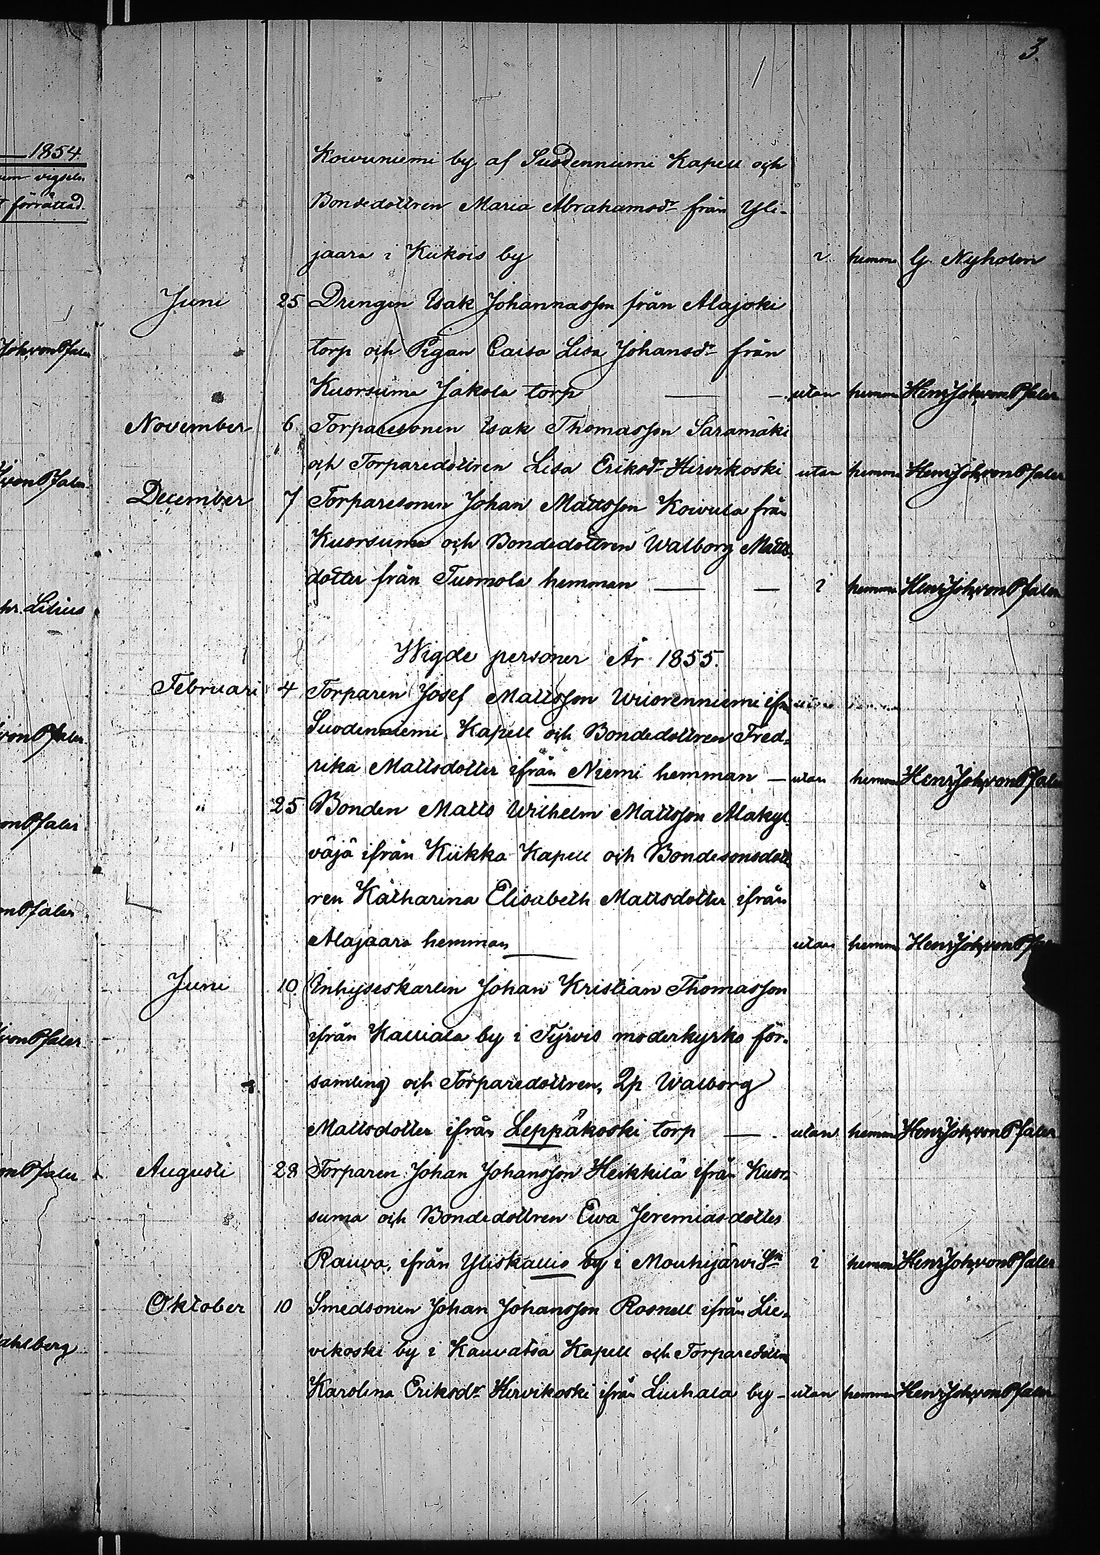 3.
1854
um vigseln
förrättad.
Koivuniemi by af Suodenniemi Kapell och
Bondedottren Maria Abrahamsdr från Yli-
jaara i Kiikois by i hemm G. Nyholm
Juni 25 Drengen Isak Johannasson från Alajoki
torp och Pigan Caisa Lisa Johansdr från
Kuorsuma Jakola torp — utan hemm Henr Joh von Pfaler
November 6. Torparesonen Isak Thomasson Saramäki
och Torparedottren Lisa Eriksdr Hirvikoski utan hemm Henr Joh von Pfaler
December 7 Torparesonen Johan Mattsson Koivula från
Kuorsuma och Bondedottren Walborg Matts-
dotter från Tuomola hemman — — i hemm Henr Joh von Pfaler
Wigde personer År 1855.
Februari 4 Torparen Josef Mattsson Wuorenniemi ifrn
Suodenniemi Kapell och Bondedottren Fred-
rika Mattsdotter ifrån Niemi hemman — utan hemm Henr Joh von Pfaler
" 25 Bonden Matts Wilhelm Mattsson Alakyl-
väjä ifrån Kiikka Kapell och Bondesonsdott-
ren Katharina Elisabeth Mattsdotter ifrån
Alajaara hemman — utan hemm Henr Joh von Pfaler
Juni 10 Inhyseskarlen Johan Kristian Thomasson
ifrån Kalliala by i Tyrvis moderkyrko för-
samling och Torparedottren, Qp. Walborg
Mattsdotter ifrån Leppäkoski torp — utan hemm Henr Joh von Pfaler
Augusti 28 Torparen Johan Johansson Heikkilä ifrån Kuor-
suma och Bondedottren Ewa Jeremiasdotter
Rauva, ifrån Yliskallio by i Mouhijärvi Sn i hemm Henr Joh von Pfaler
Oktober 10 Smedsonen Johan Johansson Rosnell ifrån Lie-
vikoski by i Kauvatsa Kapell och Torparedottren
Karolina Eriksdr Hirvikoski ifrån Liuhala by - utan hemm Henr Joh von Pfaler